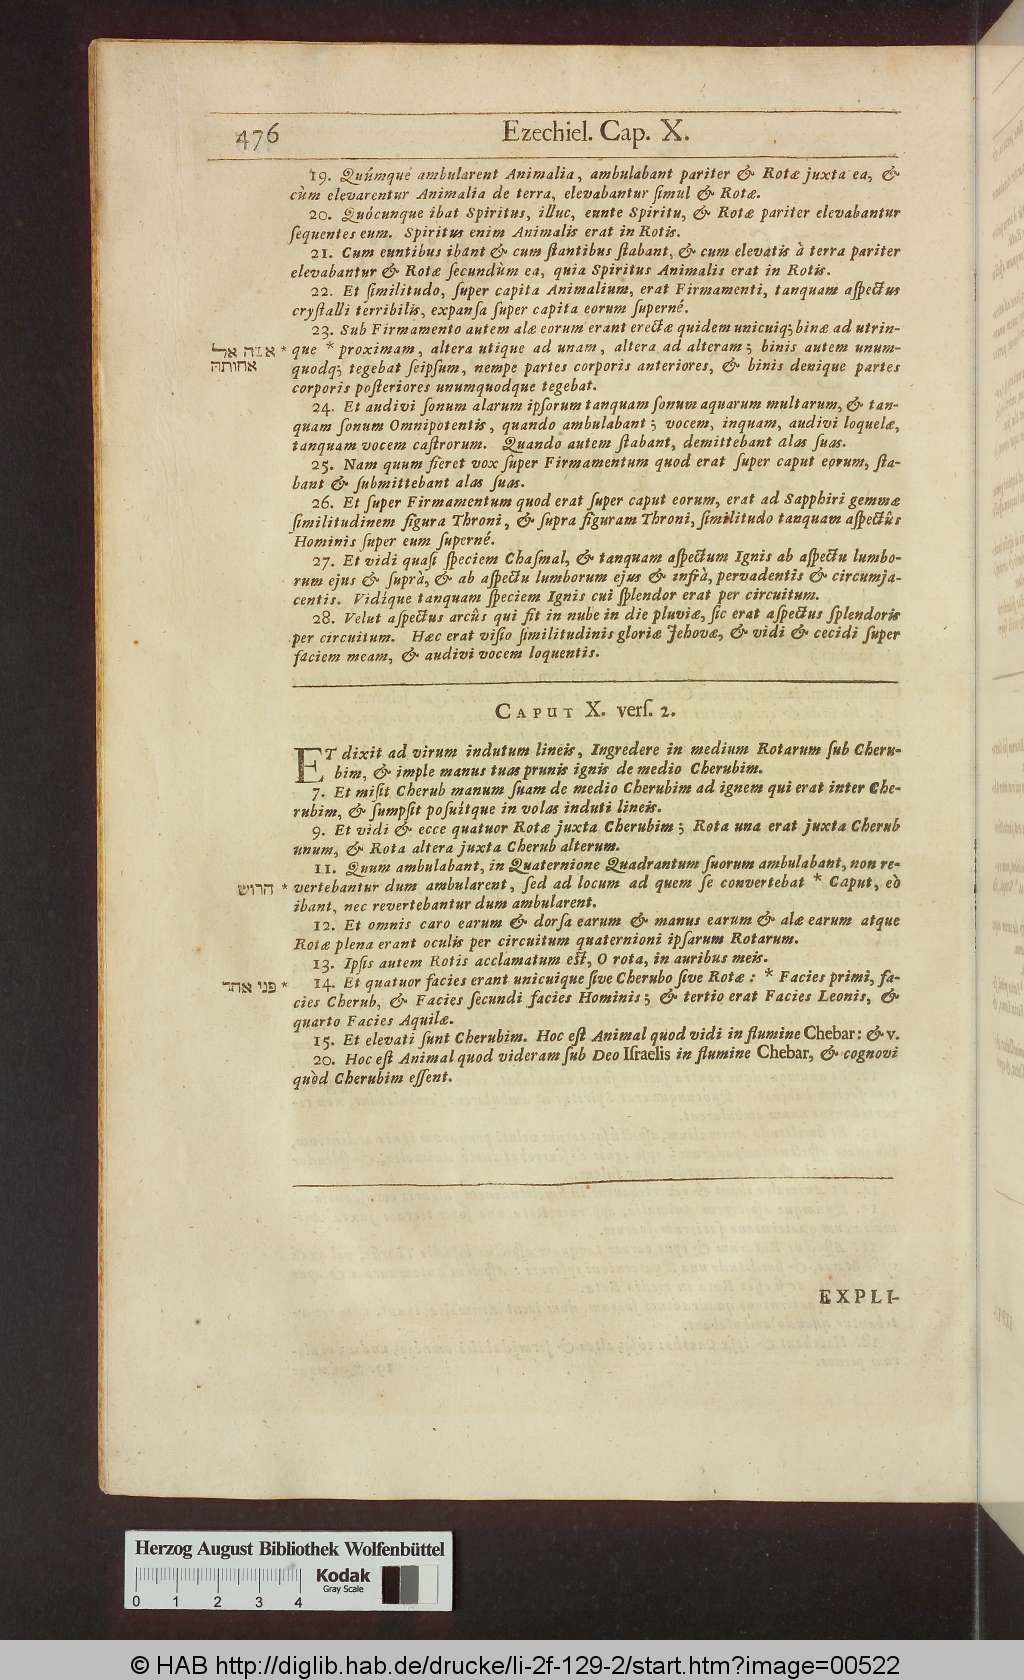 476 Ezechiel. Cap. X.
19. Quúmque ambularent Animalia, ambulabant pariter & Rotæ juxta ea, &
cùm elevarentur Animalia de terra, elevabantur ſimul & Rotæ.
20. Quócunque ibat Spiritus, illuc, eunte Spiritu, & Rotæ pariter elevabantur
ſequentes eum. Spiritus enim Animalis erat in Rotis.
21. Cum euntibus ibant & cum ſtantibus ſtabant, & cum elevatis à terra pariter
elevabantur & Rotæ ſecundùm ea, quia Spiritus Animalis erat in Rotis.
22. Et ſimilitudo, ſuper capita Animalium, erat Firmamenti, tanquam aſpectus
cryſtalli terribilis, expanſa ſuper capita eorum ſuperné.
23. Sub Firmamento autem alæ eorum erant erectæ quidem unicuiq; binæ ad utrin-
אשה אל * que * proximam, altera utique ad unam, altera ad alteram; binis autem unum-
אחותה quodq; tegebat ſeipſum, nempe partes corporis anteriores, & binis denique partes
corporis poſteriores unumquodque tegebat.
24. Et audivi ſonum alarum ipſorum tanquam ſonum aquarum multarum, & tan-
quam ſonum Omnipotentis, quando ambulabant; vocem, inquam, audivi loquelæ,
tanquam vocem caſtrorum. Quando autem ſtabant, demittebant alas ſuas.
25. Nam quum fieret vox ſuper Firmamentum quod erat ſuper caput eorum, ſta-
bant & ſubmittebant alas ſuas.
26. Et ſuper Firmamentum quod erat ſuper caput eorum, erat ad Sapphiri gemmæ
ſimilitudinem figura Throni, & ſupra figuram Throni, ſimilitudo tanquam aſpectûs
Hominis ſuper eum ſuperné.
27. Et vidi quaſi ſpeciem Chaſmal, & tanquam aſpectum Ignis ab aſpectu lumbo-
rum ejus & ſuprà, & ab aſpectu lumborum ejus & infrà, pervadentis & circumja-
centis. Vidíque tanquam ſpeciem Ignis cui ſplendor erat per circuitum.
28. Velut aſpectus arcûs qui fit in nube in die pluviæ, ſic erat aſpectus ſplendoris
per circuitum. Hæc erat viſio ſimilitudinis gloriæ Jehovæ, & vidi & cecidi ſuper
faciem meam, & audivi vocem loquentis.
CAPUT X. verſ. 2.
ET dixit ad virum indutum lineis, Ingredere in medium Rotarum ſub Cheru-
bim, & imple manus tuas prunis ignis de medio Cherubim.
7. Et miſit Cherub manum ſuam de medio Cherubim ad ignem qui erat inter Che-
rubim, & ſumpſit poſuitque in volas induti lineis.
9. Et vidi & ecce quatuor Rotæ juxta Cherubim; Rota una erat juxta Cherub
unum, & Rota altera juxta Cherub alterum.
11. Quum ambulabant, in Quaternione Quadrantum ſuorum ambulabant, non re-
הרוש * vertebantur dum ambularent, ſed ad locum ad quem ſe convertebat * Caput, eò
ibant, nec revertebantur dum ambularent.
12. Et omnis caro earum & dorſa earum & manus earum & alæ earum atque
Rotæ plena erant oculis per circuitum quaternioni ipſarum Rotarum.
13. Ipſis autem Rotis acclamatum eſt, O rota, in auribus meis.
פני אחד * 14. Et quatuor facies erant unicuique ſive Cherubo ſive Rotæ: * Facies primi, fa-
cies Cherub, & Facies ſecundi facies Hominis; & tertio erat Facies Leonis, &
quarto Facies Aquilæ.
15. Et elevati ſunt Cherubim. Hoc eſt Animal quod vidi in flumine Chebar: & v.
20. Hoc eſt Animal quod videram ſub Deo Iſraelis in flumine Chebar, & cognovi
quòd Cherubim eſſent.
EXPLI-
Herzog August Bibliothek Wolfenbüttel
Kodak
Gray Scale
0 1 2 3 4
© HAB http://diglib.hab.de/drucke/li-2f-129-2/start.htm?image=00522